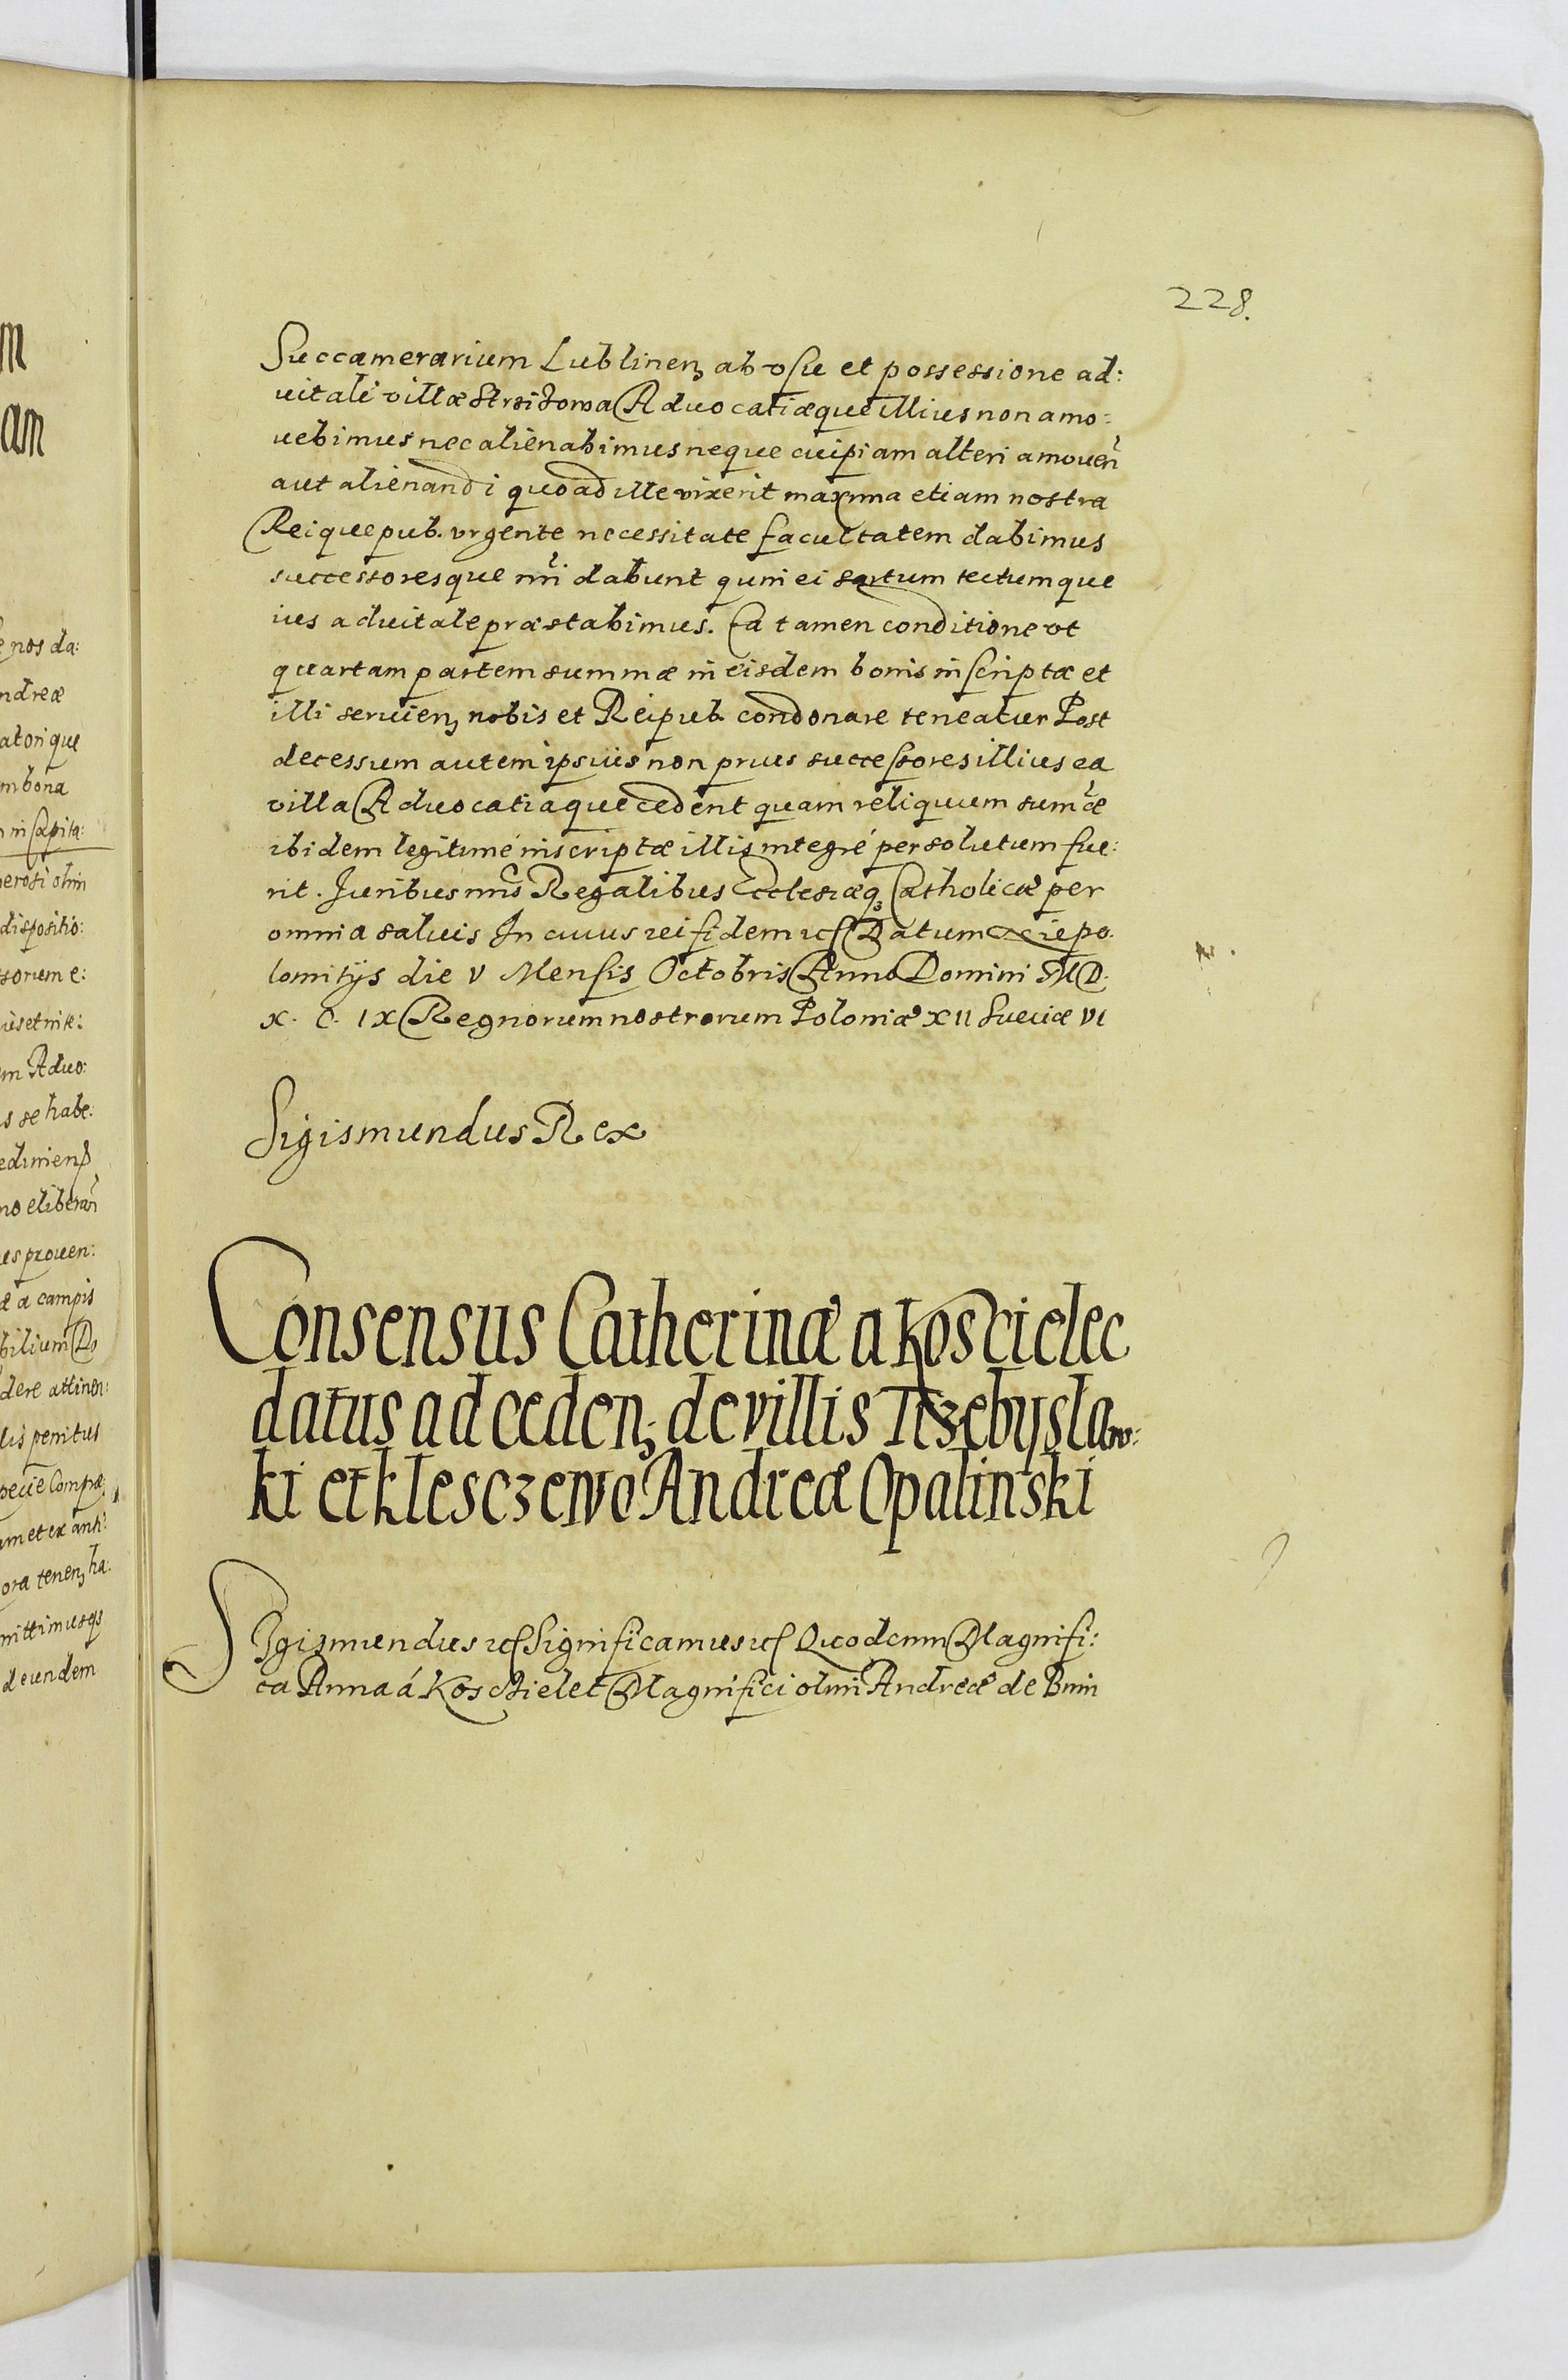 228.
Succamerarium Lublinen₃ ab vsu et possessione ad:
uitali villæ Strsi Aduocatiæque illius non amo:
uebimus nec alienabimus neque cuipiam alteri amouen̄
aut alienandi quoad ille vixerit maxima etiam nostra
Reique pub. vrgente necessitate facultatem dabimus
successoresque nr̄i dabunt quin ei sartum tectumque
ius aduitale præstabimus. Ea tamen conditione vt
quartam partem summæ in eisdem bonis inscriptæ et
illi seruien₃ nobis et Reipub. condonare teneatur Post
decessum autem ipsius non prius successores illius ea
villa Aduocatiaque cedent quam reliquum sum̄æ
ibidem legitimé inscriptæ illis integré persolutum fue:
rit. Juribus nr̄is Regalibus Ecclesiæq₃ Catholicæ per
omnia saluis In cuius rei fidem Datum
lomitijs die V Mensis Octobris Anno Domini M D.
X. C. IX Regnorum nostrorum Poloniæ XII Sueciæ VI
Sigismundus Rex
Consensus Catherinæ a Koscielec
datus ad ceden₃ de villis Trzebyslaw:
ki et Klesczewo Andreæ Opalinski
SIgismundus Significamus Quod cum Magnifi:
ca Anna á Koscielec Magnifici olim Andreæ de Bnin
m
am
e nos da:
ndreæ
atorique
m bona
in Capita:
nerosi olim
dispositio:
sorum e:
m Aduo:
s se habe:
no eliberan̄
es prouen:
æ a campis
bilium
dere attinen:
lis penitus
am et ex anti:
ora tenen₃ ha:
mittimusq₃
d eundem